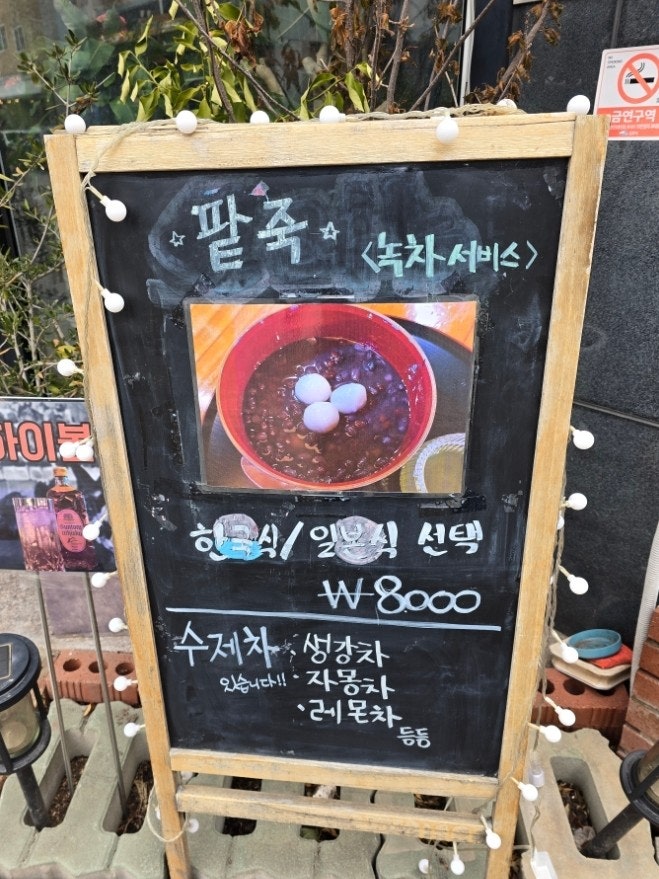 금연구역
☆ 팥죽 ☆
<녹차 서비스>
하이볼
한국식/일본식 선택
₩8000
수제차
있습니다!!
· 생강차
· 자몽차
· 레몬차
등등